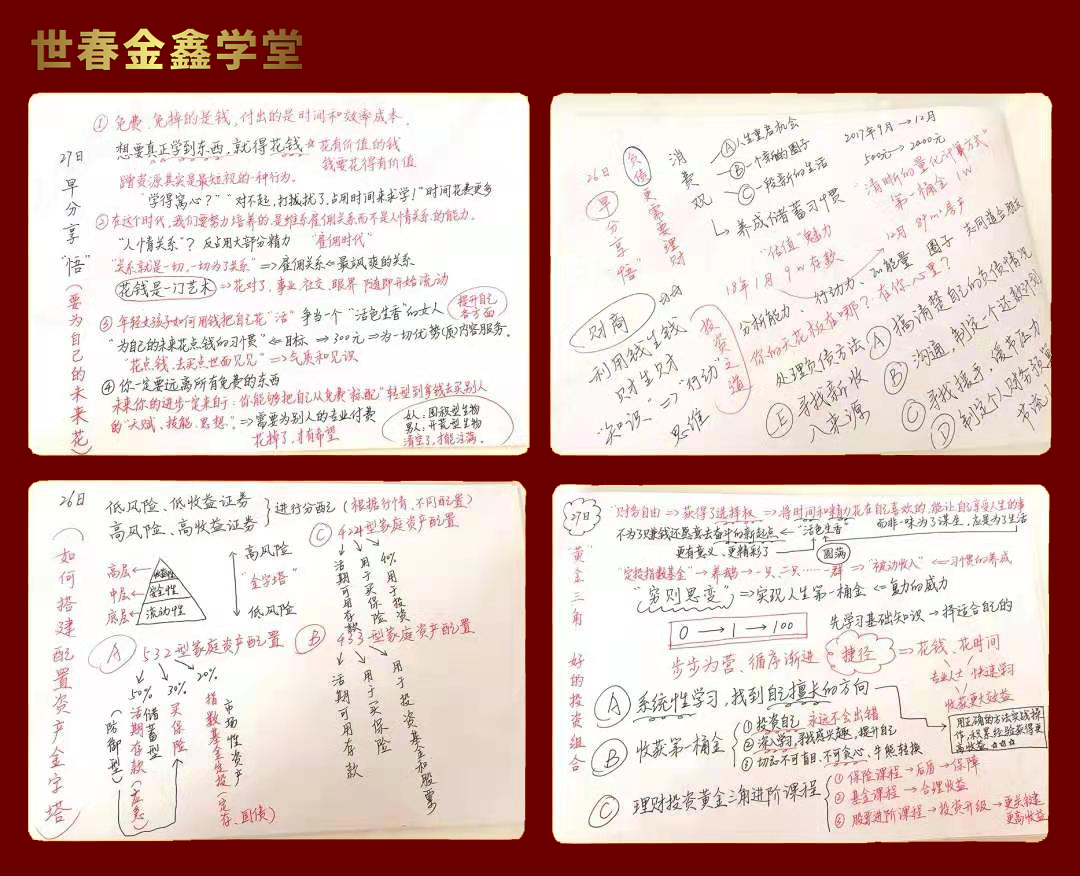 世春金鑫学堂
27日早分享"悟"(要为自己的未来花)
① 免费、免掉的是钱,付出的是时间和效率成本。
想要真正学到东西,就得花钱 花有价值的钱
钱要花得有价值
蹭资源其实是最短视的一种行为。
"学得寓心?" "对不起,打扰了,占用时间来求学!"时间花费更多
② 在这个时代,我们要努力培养的是维系雇佣关系而不是人情关系的能力。
"人情关系"? 反占用大部分精力 "雇佣时代"
"关系就是一切,一切为了关系" ⇒ 雇佣关系 ⇐ 最飒爽的关系
花钱是一门艺术 ⇒ 花对了,事业、社交、眼界 随即开始流动
③ 年轻女孩子如何用钱把自己花"活" 争当一个"活色生香"的女人 提升自己各方面
"为自己的未来花点钱的习惯" ⇐ 目标 ⇒ 300元 ⇒ 为一切优势(质)内容服务。
"花点钱、去买点世面见见" ⇒ 气质和见识
④ 你一定要远离所有免费的东西
未来你的进步一定来自于:你能够把自己从免费"标配"转型到拿钱去买别人
的"天赋、技能、思想。" ⇒ 需要为别人的专业付费
花掉了,才有希望
女人:囤积型生物
男人:开荒型生物
清空了,才能注满。
26日早分享"悟"
负债更需要理财
消费观
Ⓐ 人生重启机会
Ⓑ 一个新的圈子
Ⓒ 一段新的生活
养成储蓄习惯
2017年9月 → 12月
500元 → 2000元
"清晰的量化计算方式"
第一桶金 1W
"估值"魅力 12月 89m²房产
18年1月 9W存款
财商
利用钱生钱
只才生只才
"知识" ⇒ "行动"
思维
投资之道
分析能力、行动力、正能量 圈子 共同道合朋友
你的天花板在哪? 在你心里?
处理负债方法
Ⓐ 搞清楚自己的负债情况
Ⓑ 沟通,制定个还款计划
Ⓒ 寻找援手,缓市压力
Ⓓ 制定个人财务预算
节流
Ⓔ 寻找新收入来源
26日
(如何搭建配置资产金字塔)
低风险、低收益证券
高风险、高收益证券
进行分配 (根据行情、不同配置)
高层 ← 收益性
中层 ← 安全性
底层 ← 流动性
高风险
"金字塔"
低风险
Ⓐ 532型家庭资产配置
50% 活期存款(应急) 储蓄型 (防御型)
30% 买保险
20% 指数基金定投(定存、国债) 市场性资产
Ⓒ 424型家庭资产配置
活期可用存款
用于买保险
40% 用于投资
Ⓑ 433型家庭资产配置
活期可用存款
用于买保险
用于投资基金和股票
27日
"黄金三角 好的投资组合
"财务自由 ⇒ 获得了选择权 ⇒ 将时间和精力花在自己喜欢的,能让自己享受人生的事
而非一味为了谋生,应是为了生活
不为了赚钱还愿意去奋斗的新起点 ← "活色生香"
更有意义、更精彩了 圆满
"定投指数基金" → 养鹅 → 一只、二只……一群 ⇒ "被动收入" ⇐ 习惯的养成
"穷则思变" ⇒ 实现人生第一桶金 ⇐ 复力的威力
0 → 1 → 100
先学习基础知识 → 择适合自己的
步步为营、循序渐进 捷径 ⇒ 花钱、花时间
专业人士 快速学习
收获更大效益
Ⓐ 系统性学习,找到自己擅长的方向
用正确的方法实战操作,积累经验获得更高收益
Ⓑ 收获第一桶金
① 投资自己 永远不会出错
② 深入学习,寻找成兴趣,提升自己
③ 切忌不可盲目、不可贪心、牛熊转换
Ⓒ 理财投资黄金三角进阶课程
① 保险课程 → 后盾 → 保障
② 基金课程 → 合理收益
③ 股票进阶课程 → 投资升级 → 更关键
更高收益